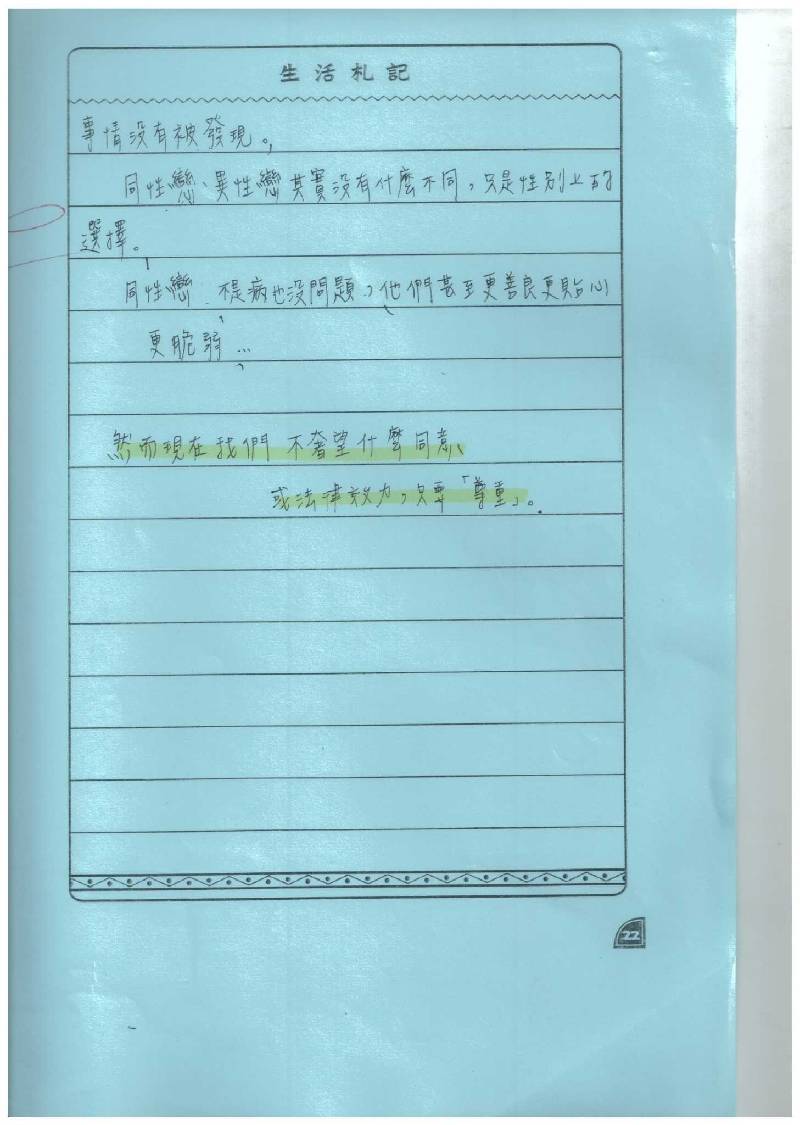 生活札記
事情沒有被發現。
同性戀、異性戀其實沒有什麼不同，只是性別上的
選擇。
同性戀 不是病也沒問題，他們甚至更善良更貼心
更脆弱…
然而現在我們 不奢望什麼同意
或法律效力，只要「尊重」。
22